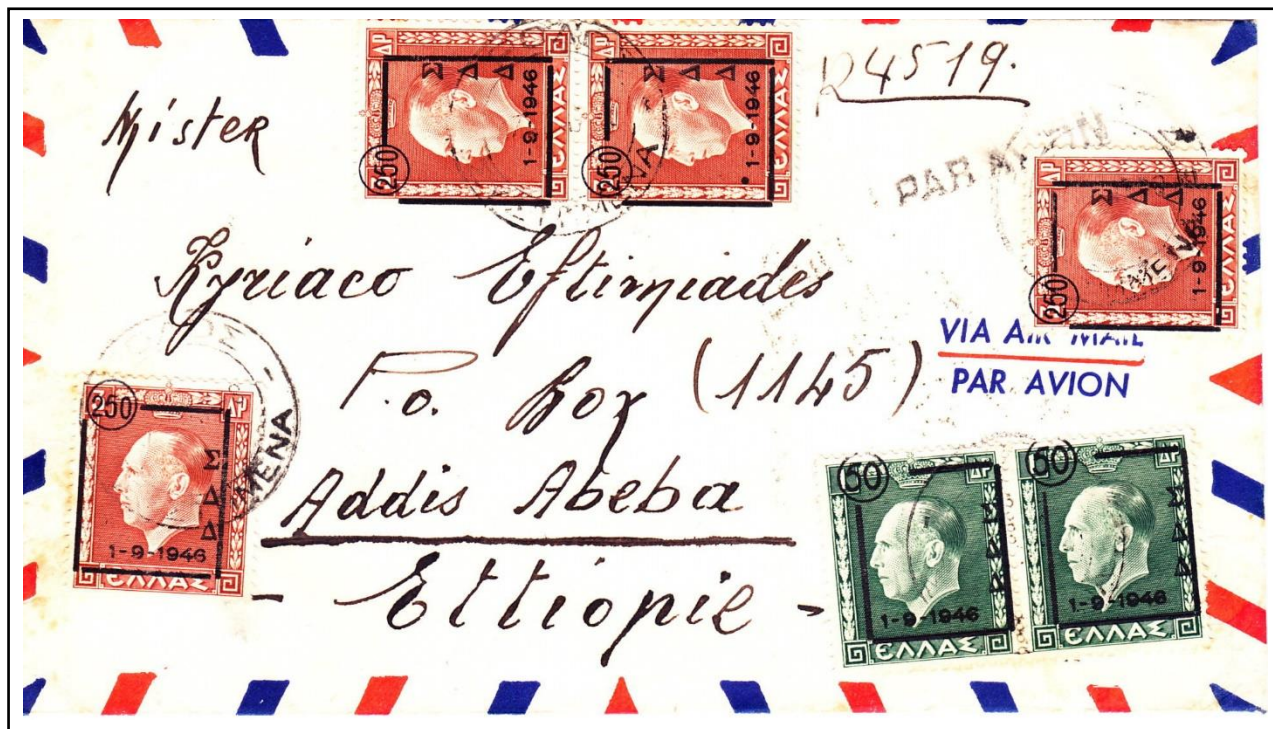 Mister
R4519.
PAR AVION
Kyriaco Eftimiades
P.o. Box (1145)
Addis Abeba
- Ettiopie -
VIA AIR MAIL
PAR AVION
250
ΔΡ
Σ Δ Δ
1-9-1946
ΕΛΛΑΣ
250
ΔΡ
Σ Δ Δ
1-9-1946
ΕΛΛΑΣ
250
ΔΡ
Σ Δ Δ
1-9-1946
ΕΛΛΑΣ
250
ΔΡ
Σ Δ Δ
1-9-1946
ΕΛΛΑΣ
50
ΔΡ
Σ Δ Δ
1-9-1946
ΕΛΛΑΣ
50
ΔΡ
Σ Δ Δ
1-9-1946
ΕΛΛΑΣ